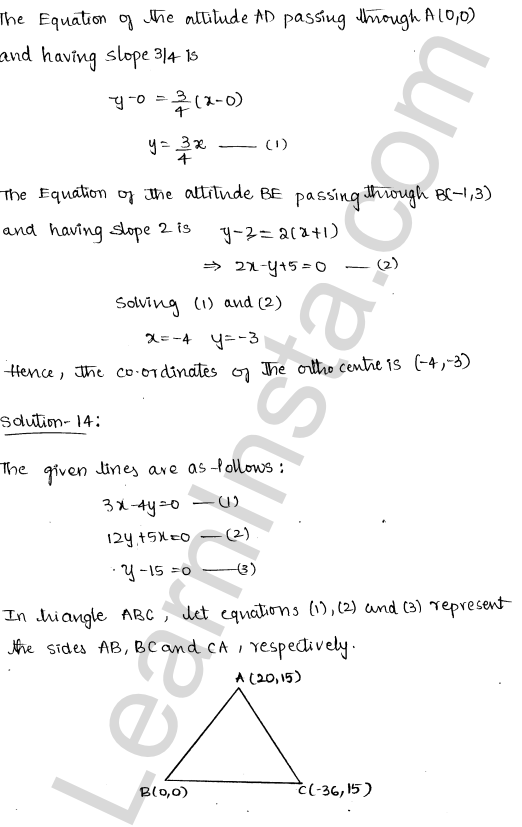 The Equation of the altitude AD passing through A(0,0)
and having slope 3/4 is
y-0 = 3/4 (x-0)
y = 3/4 x — (1)
The Equation of the altitude BE passing through B(-1,3)
and having slope 2 is y-3=2(x+1)
⇒ 2x-y+5=0 — (2)
Solving (1) and (2)
x=-4 y=-3
Hence, the co-ordinates of the ortho centre is (-4,-3)
Solution-14:
The given lines are as follows:
3x-4y=0 — (1)
12y+5x=0 — (2)
y-15=0 — (3)
In triangle ABC, let equations (1), (2) and (3) represent
the sides AB, BC and CA, respectively.
A(20,15)
B(0,0) C(-36,15)
LearnInsta.com